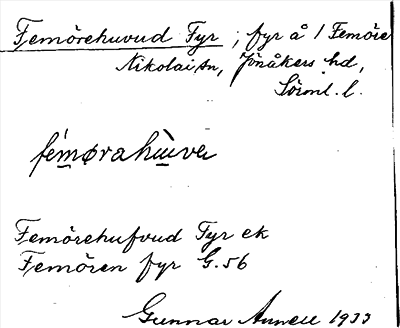 Femörehuvud Fyr ; fyr å / Femöre
Nikolai sn, Jönåkers hd,
Sörml. l.
Femörehufvud Fyr ek
Femören fyr G.56
Gunnar Annell 1933